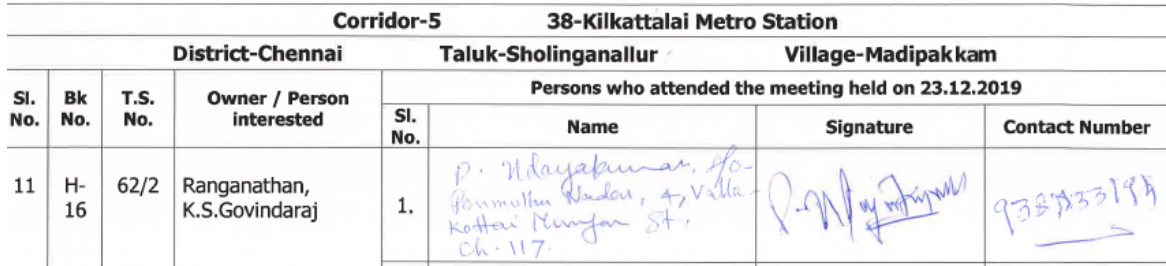 Corridor-5 38-Kilkattalai Metro Station
District-Chennai Taluk-Sholinganallur Village-Madipakkam
Sl. No. Bk No. T.S. No. Owner / Person interested Persons who attended the meeting held on 23.12.2019
Sl. No. Name Signature Contact Number
11 H-16 62/2 Ranganathan, K.S.Govindaraj 1.
P. Udayakumar, S/o-
Ponmuthu Nadar, 4, Valla-
Kottai Murugan St.,
Ch-117.